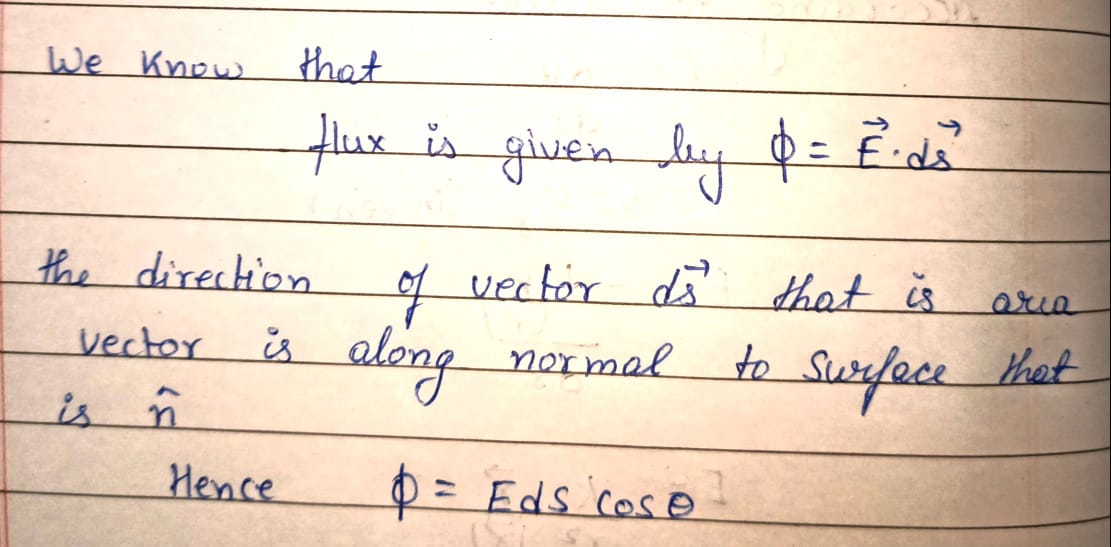 We Know that
flux is given by ϕ = E⃗·ds⃗
the direction of vector ds⃗ that is area
vector is along normal to surface that
is n̂
Hence ϕ = Eds cosθ